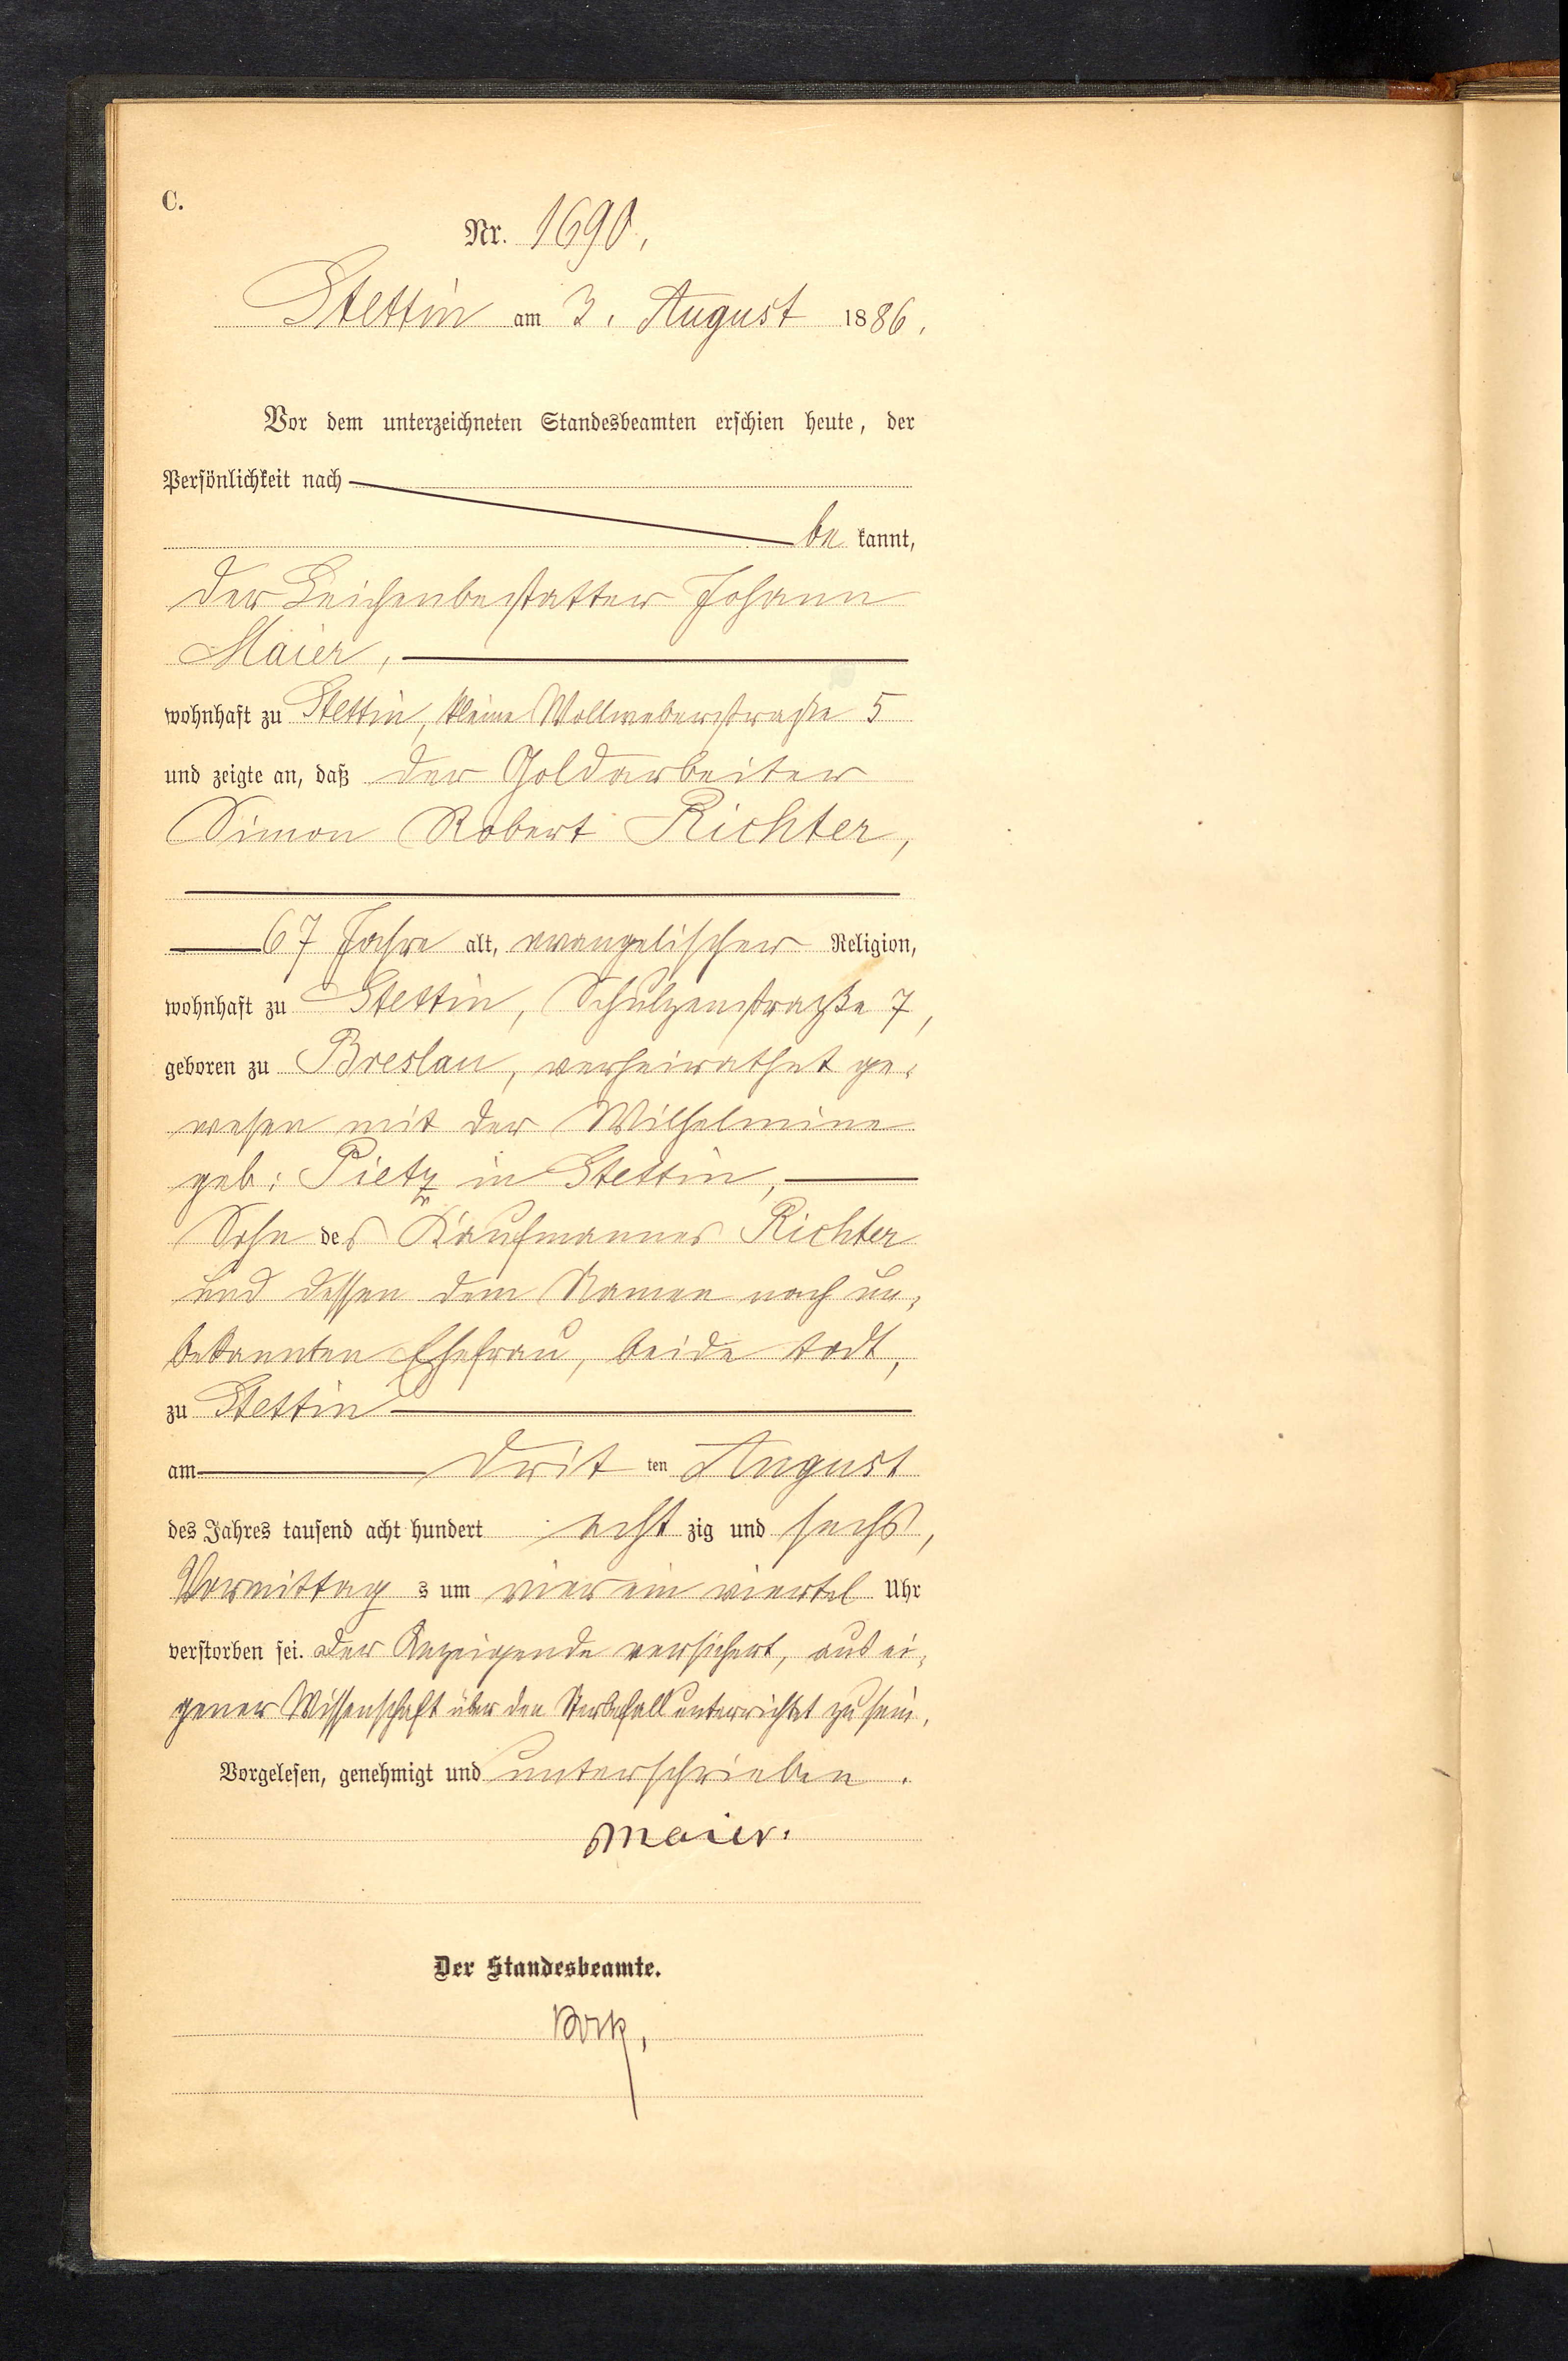 C.
Nr. 1690.
Stettin am 3. August 1886.
Vor dem unterzeichneten Standesbeamten erschien heute, der
Persönlichkeit nach
be kannt,
der Leichenbestatter Johann
Maier,
wohnhaft zu Stettin, kleine Wollweberstraße 5
und zeigte an, daß der Goldarbeiter
Simon Robert Richter,
67 Jahre alt, evangelischer Religion,
wohnhaft zu Stettin, Schulzenstraße 7,
geboren zu Breslau, verheirathet ge-
wesen mit der Wilhelmine
geb: Pietz in Stettin,
Sohn des Kaufmannes Richter
und dessen dem Namen nach un-
bekannten Ehefrau, beide todt,
zu Stettin
am drit ten August
des Jahres tausend acht hundert acht zig und sechs,
Vormittag s um vier ein viertel Uhr
verstorben sei. Der Anzeigende versichert, aus ei-
gener Wissenschaft über den Sterbefall unterrichtet zu sein.
Vorgelesen, genehmigt und unterschrieben.
Maier.
Der Standesbeamte.
Bork,